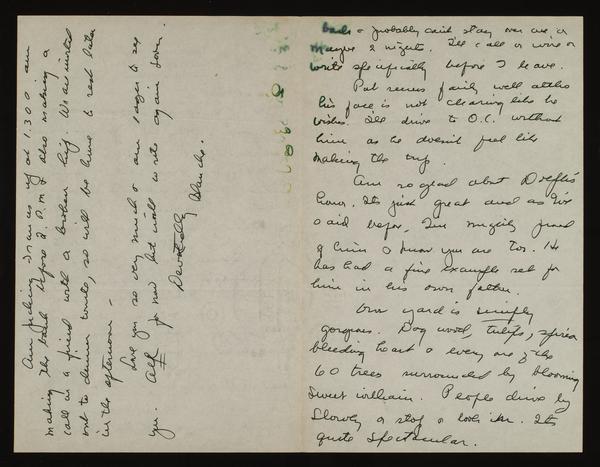 back & probably can't stay over one or
maybe 2 nights. I'll call or wire or
write specifically before I leave.
Pat seems fairly well altho
his face is not clearing like he
wishes. I'll drive to O.C. without
him as he doesn't feel like
making the trip.
Am so glad about
honor. Its just great and as I've
said before, I'm mighty proud
of him & know you are too. He
has had a fine example set for
him in his own father.
Our yard is simply
gorgeous. Dog wood, tulips, spirea
bleeding heart & every one of the
60 trees surrounded by blooming
sweet william. People drive by
slowly or stop & look in. Its
quite spectacular.
Am picking Frances up at 1:30 am
making the bank before 2 P.M. & also making a
call on a friend with a broken hip. We are invited
out to dinner tonite, so will be home to rest later
in the afternoon —
Love you so very much & am eager to see
you. for now but will write again soon.
Devotedly
Blanche.